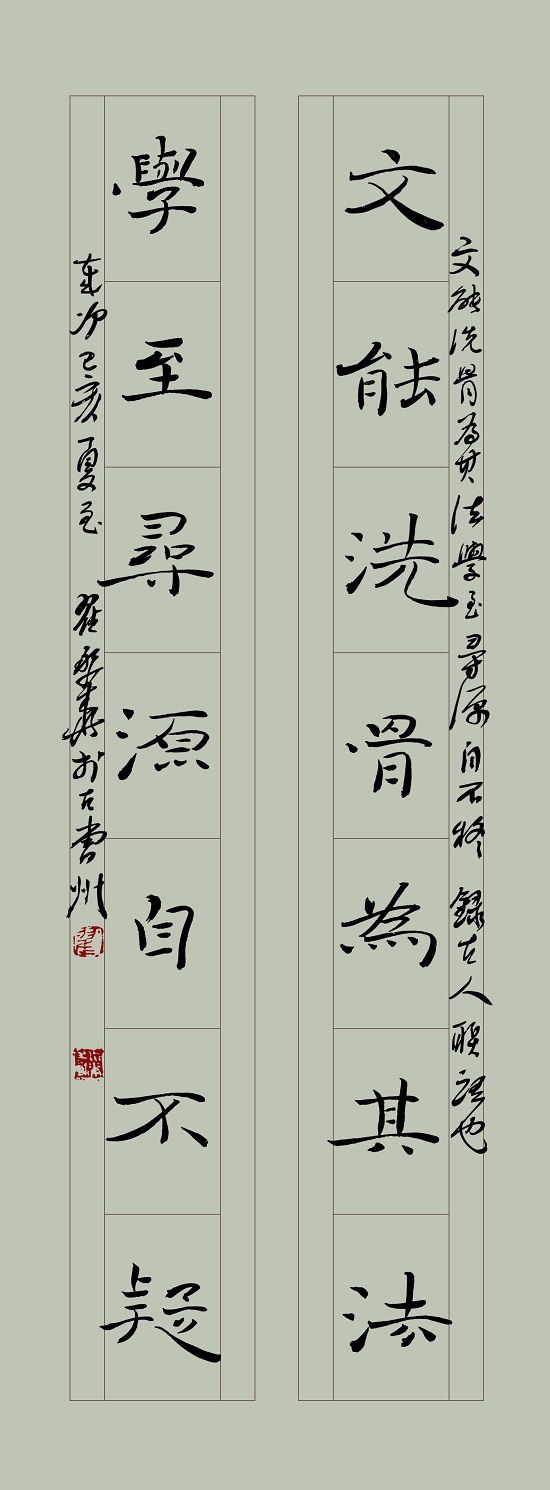 文能洗骨為其法學至尋源自不疑 録古人聯語也
文能洗骨為其法
學至尋源自不疑
歲次己亥夏至 翟 於古曹州
翟